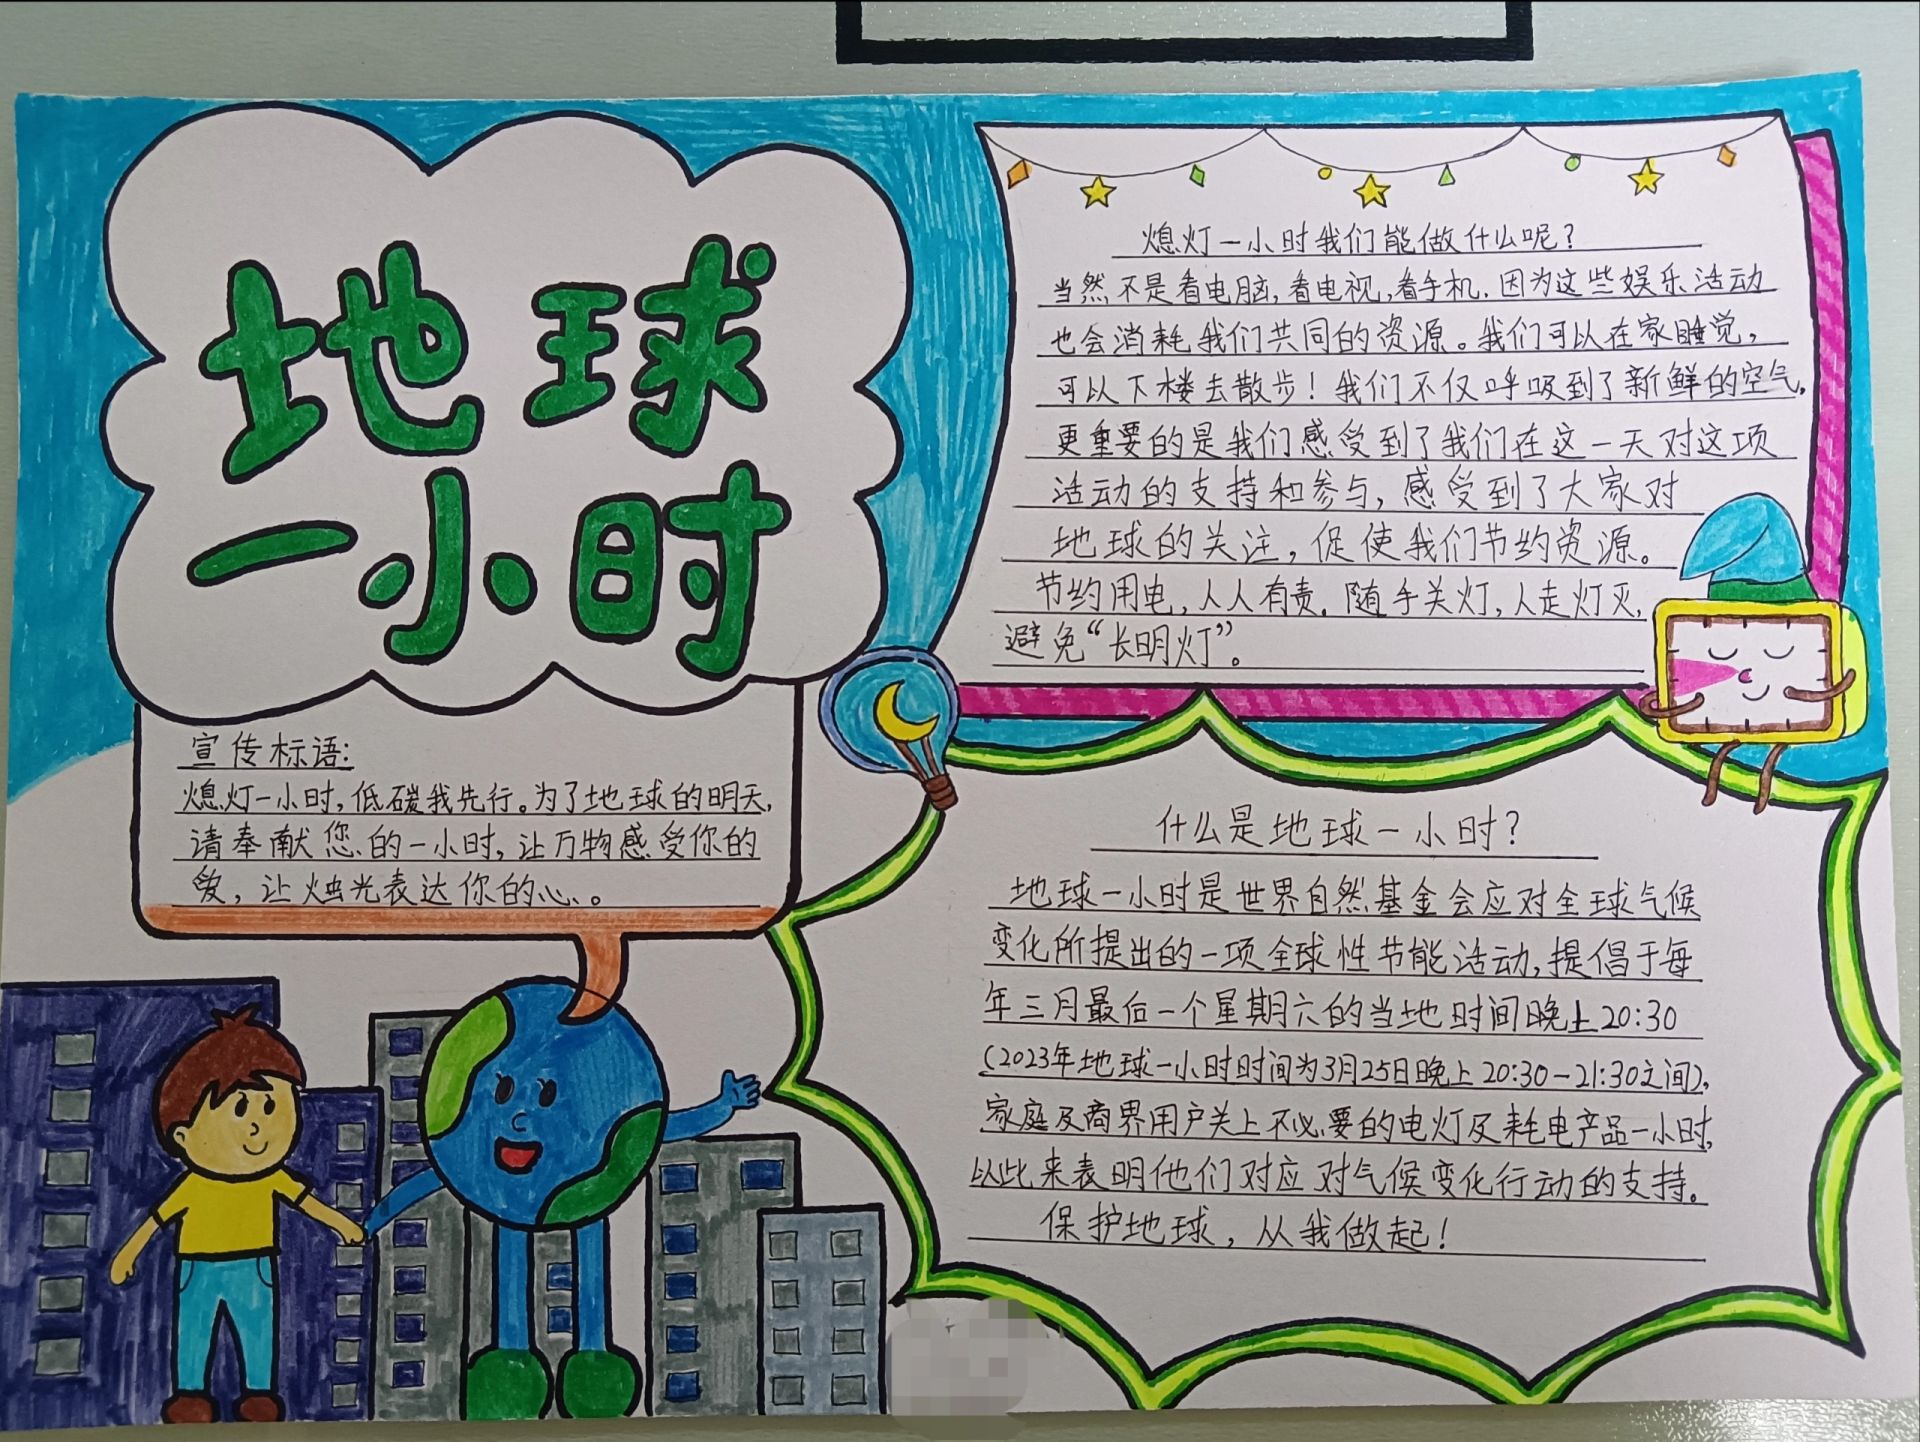 地球
一小时
宣传标语:
熄灯一小时,低碳我先行。为了地球的明天,
请奉献您的一小时,让万物感受你的
爱,让烛光表达你的心。
熄灯一小时我们能做什么呢?
当然不是看电脑,看电视,看手机.因为这些娱乐活动
也会消耗我们共同的资源。我们可以在家睡觉,
可以下楼去散步!我们不仅呼吸到了新鲜的空气,
更重要的是我们感受到了我们在这一天对这项
活动的支持和参与,感受到了大家对
地球的关注,促使我们节约资源。
节约用电,人人有责.随手关灯,人走灯灭,
避免“长明灯”。
什么是地球一小时?
地球一小时是世界自然基金会应对全球气候
变化所提出的一项全球性节能活动,提倡于每
年三月最后一个星期六的当地时间晚上20:30
(2023年地球一小时时间为3月25日晚上20:30-21:30之间),
家庭及商界用户关上不必要的电灯及耗电产品一小时,
以此来表明他们对应对气候变化行动的支持。
保护地球,从我做起!